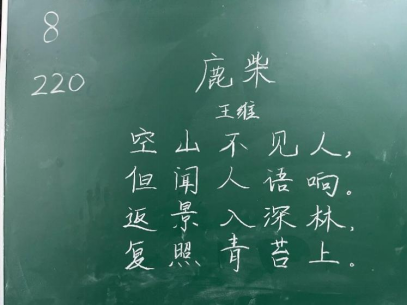 8
220
鹿柴
王维
空山不见人,
但闻人语响。
返景入深林,
复照青苔上。